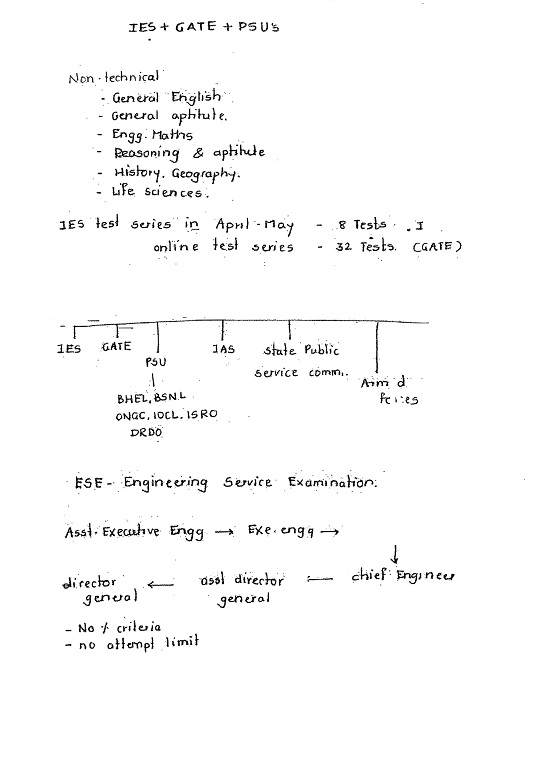 IES + GATE + PSU's
Non-technical
- General English.
- General aptitute.
- Engg. Maths
- Reasoning & aptitute
- History, Geography.
- Life sciences.
IES test series in April-May - 8 Tests. I
online test series - 32 Tests. (GATE)
IES GATE PSU IAS State Public
service comm..
BHEL, BSNL
ONGC, IOCL, ISRO
DRDO
ESE - Engineering Service Examination.
Asst. Executive Engg → Exe. engg →
↓
director general ← asst director general ← chief Engineer
- No % criteria
- no attempt limit